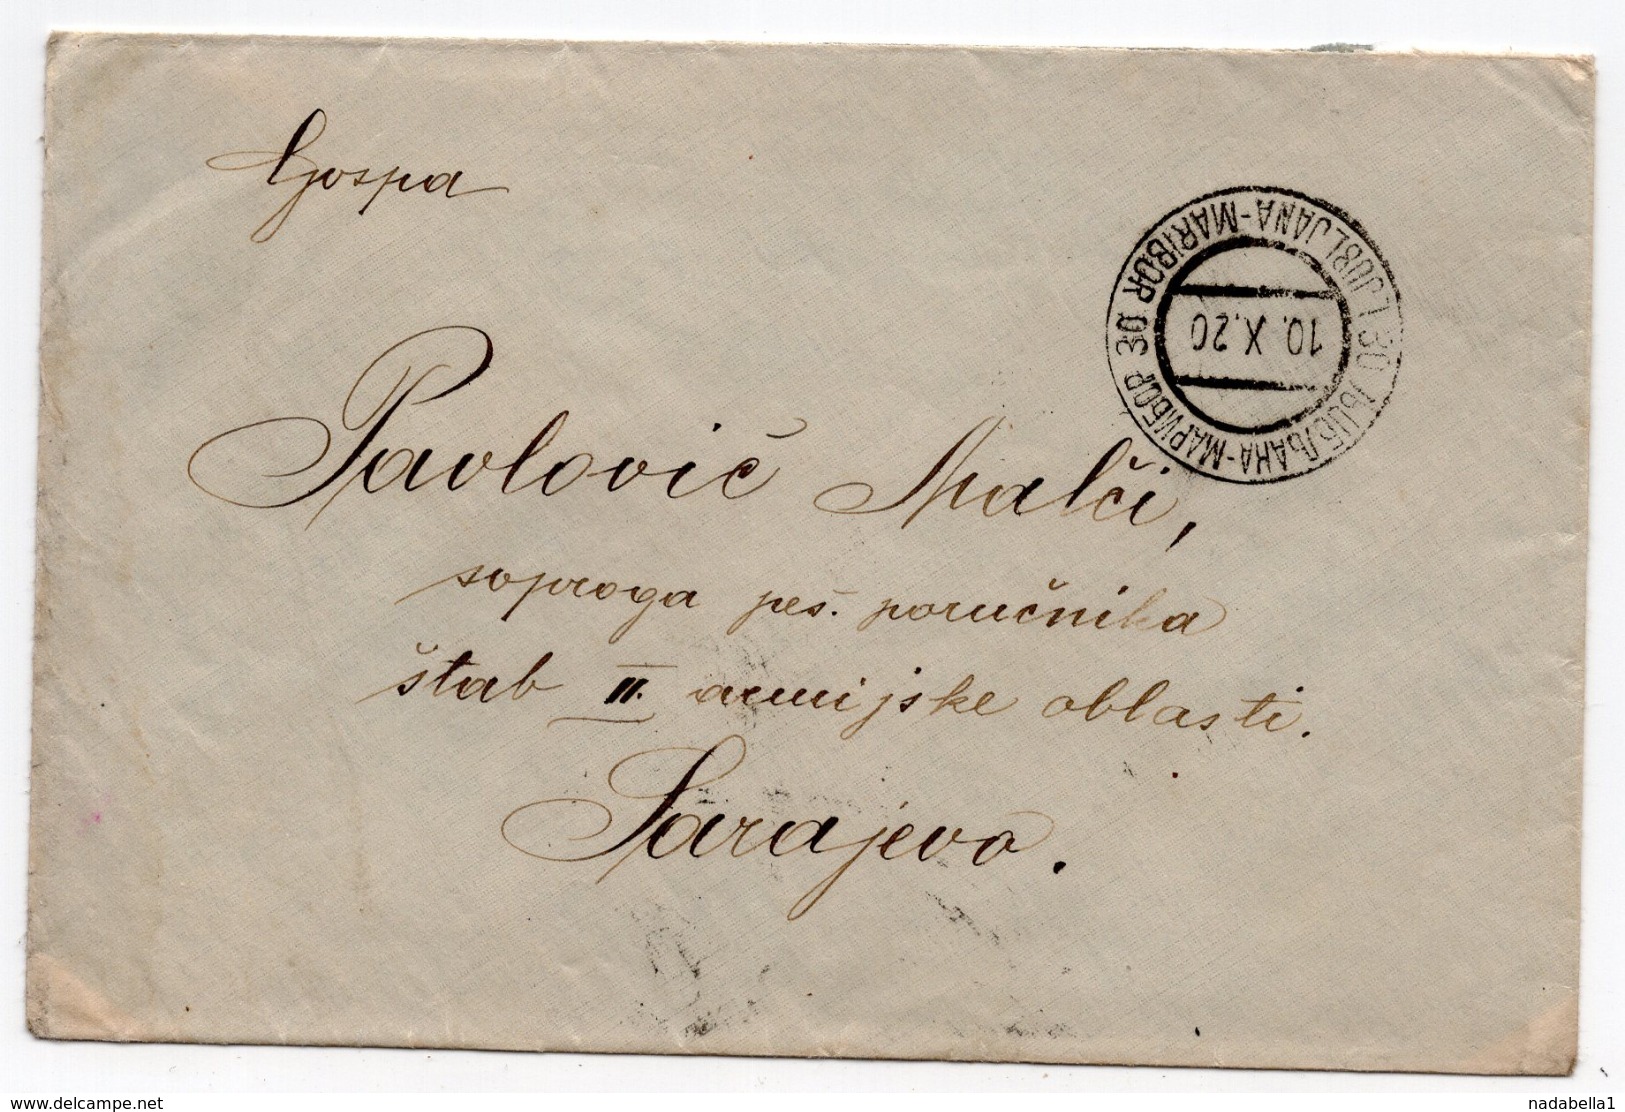 Gospa
LJUBLJANA-MARIBOR 30
ЉУБЉАНА-МАРИБОР 30
10. X. 20
Pavlovič Malči,
soproga peš. poručnika
štab II. armijske oblasti.
Sarajevo.
www.delcampe.net
nadabella1